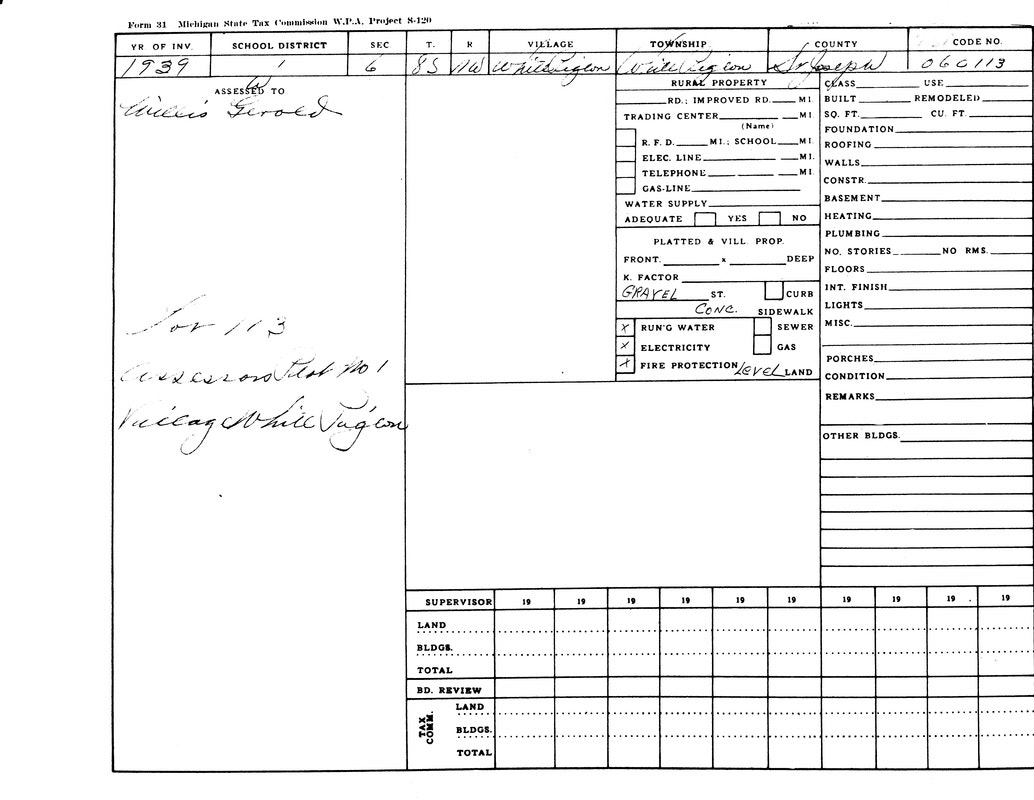 Form 31 Michigan State Tax Commission W.P.A. Project S-120
YR OF INV. SCHOOL DISTRICT SEC T. R VILLAGE TOWNSHIP COUNTY CODE NO.
1939 1 6 8S White Pigeon White Pigeon St Joseph 060113
ASSESSED TO
Willis Gerold
RURAL PROPERTY
RD.; IMPROVED RD. MI.
TRADING CENTER MI.
(Name)
R. F. D. MI.; SCHOOL MI.
ELEC. LINE MI.
TELEPHONE MI.
GAS-LINE
WATER SUPPLY
ADEQUATE YES NO
PLATTED & VILL. PROP.
FRONT. x DEEP
K. FACTOR
GRAVEL ST. CURB
CONC. SIDEWALK
X RUN'G WATER SEWER
X ELECTRICITY GAS
X FIRE PROTECTION LEVEL LAND
CLASS USE
BUILT REMODELED
SQ. FT. CU. FT.
FOUNDATION
ROOFING
WALLS
CONSTR.
BASEMENT
HEATING
PLUMBING
NO. STORIES NO RMS.
FLOORS
INT. FINISH
LIGHTS
MISC.
PORCHES
CONDITION
REMARKS
OTHER BLDGS.
Lot 113
Assessors Plat No 1
Village White Pigeon
SUPERVISOR 19 19 19 19 19 19 19 19 19 19
LAND
BLDGS.
TOTAL
BD. REVIEW
TAX COMM.
LAND
BLDGS.
TOTAL